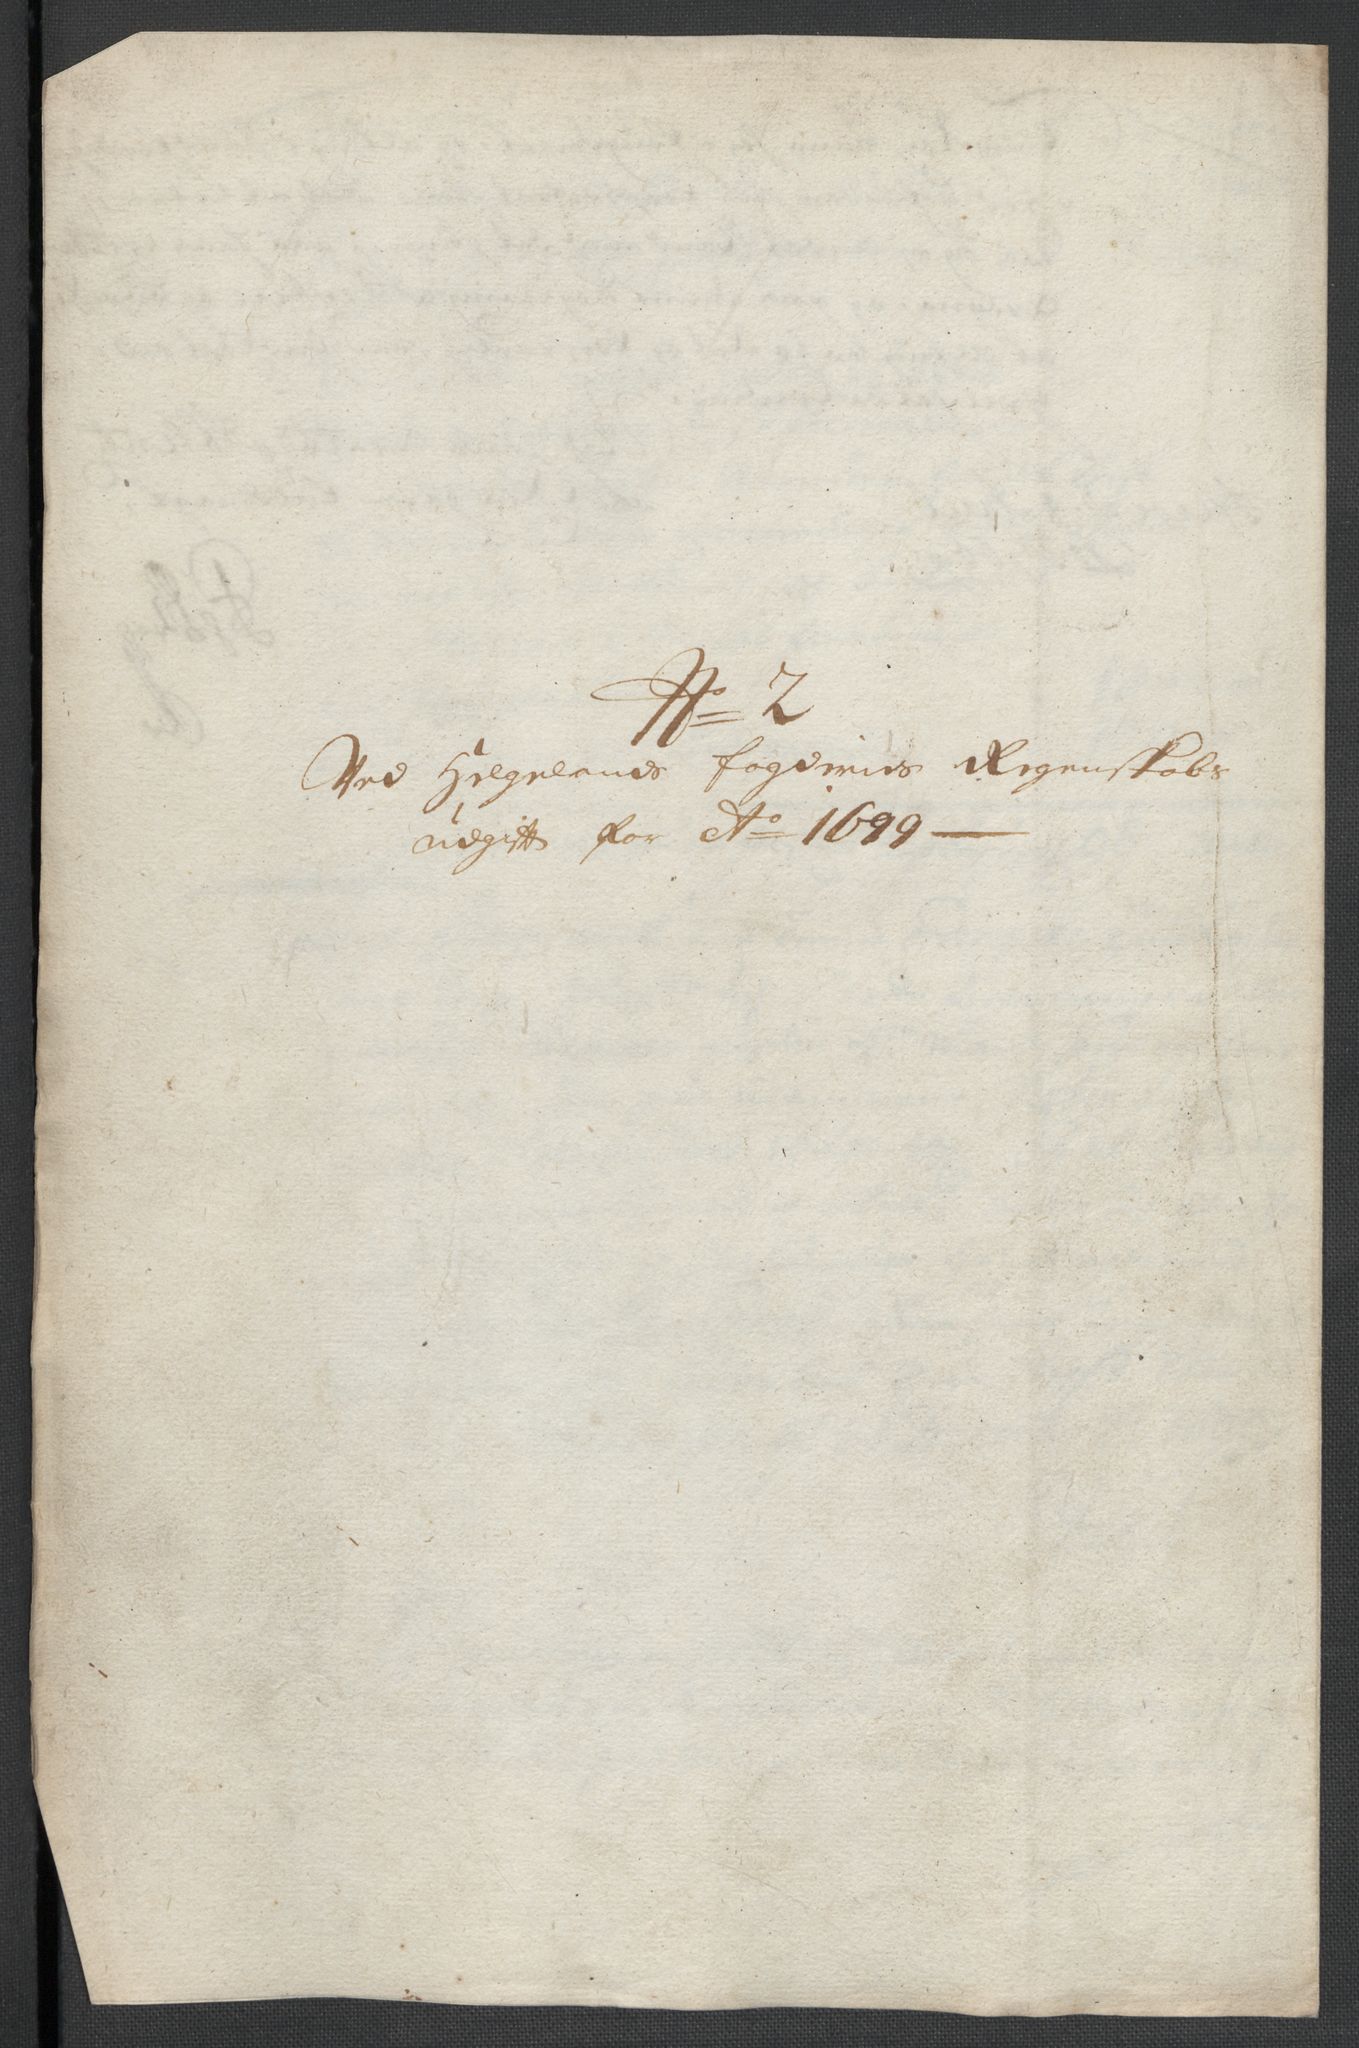 No 2
Ved Helgelands fogderies Regenskabs
udgifft for Ao 1699